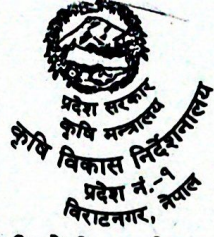 प्रदेश सरकार
कृषि मन्त्रालय
कृषि विकास निर्देशनालय
प्रदेश नं.-१
विराटनगर, नेपाल